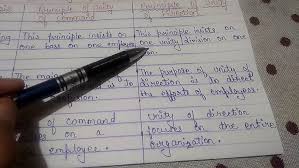 Principle of unity Principle of unity
of command of Direction
This principle insists on This principle insists on
one boss on one employee one unity division on one
The main The purpose of unity of
direction is to direct
the efforts of employees.
of command unity of direction
on a focuses on the entire
employee. organization.